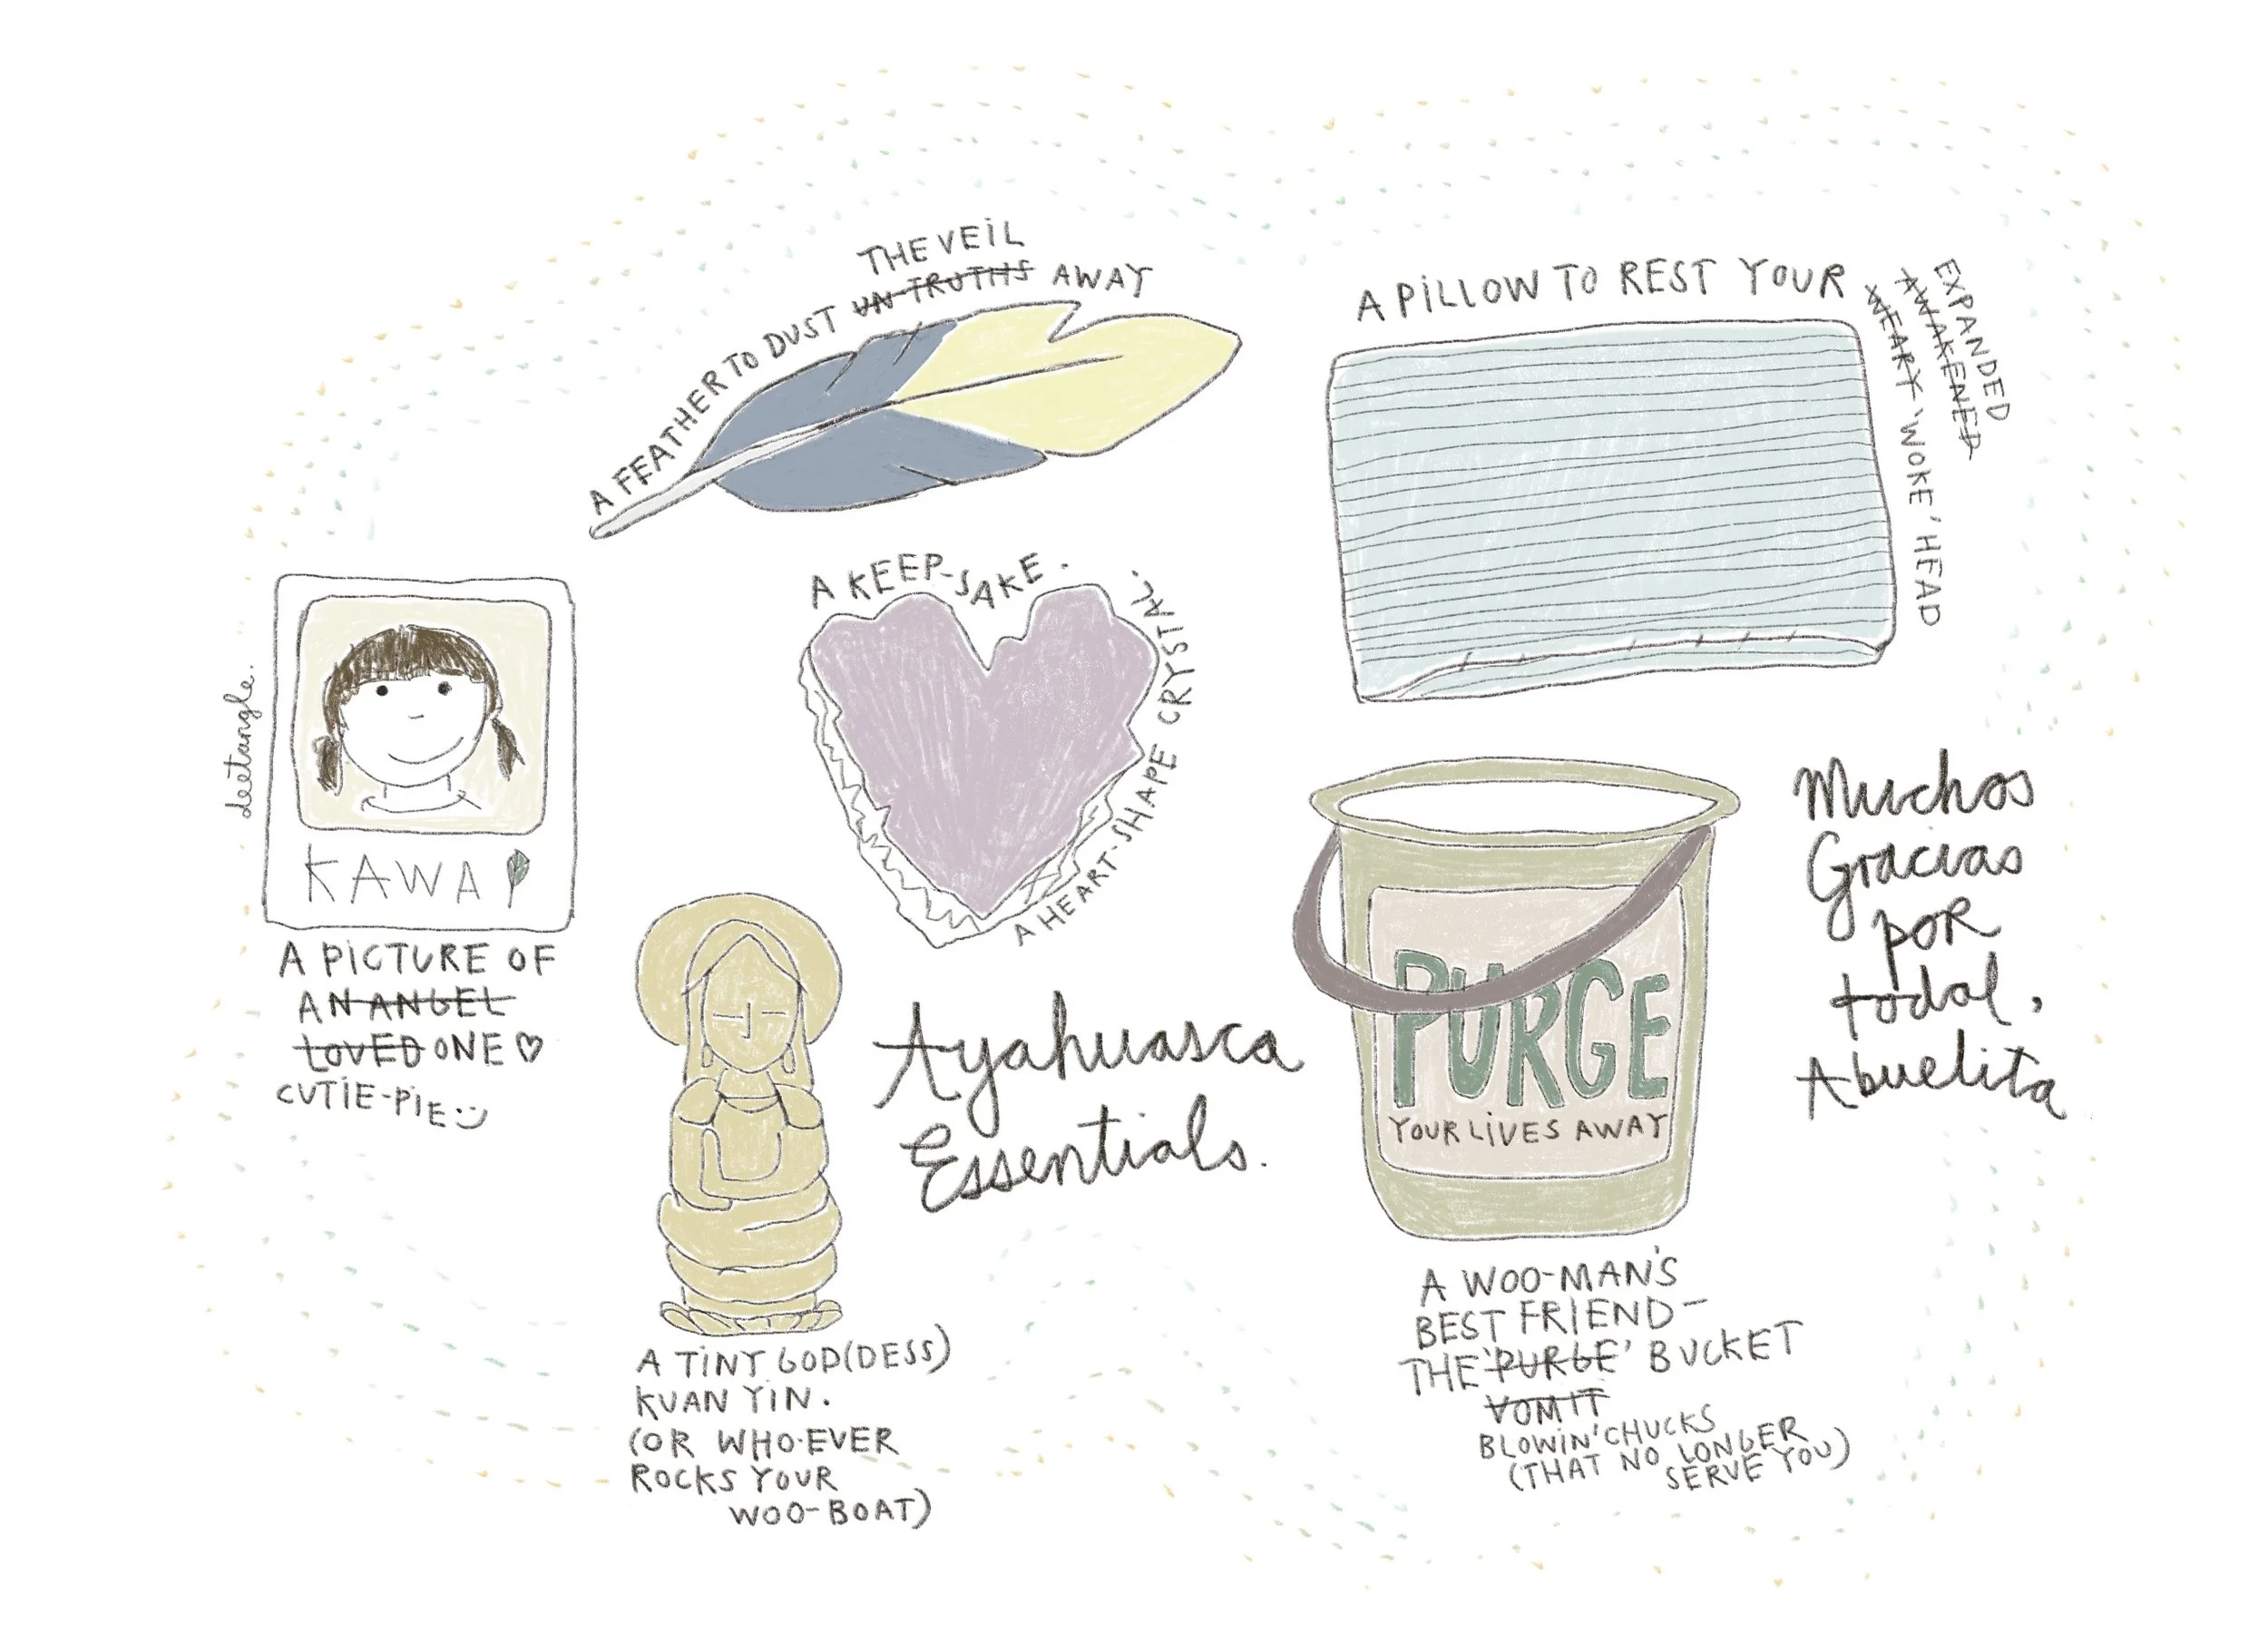 THE VEIL
A FEATHER TO DUST UN-TRUTHS AWAY
A PILLOW TO REST YOUR
EXPANDED
AWAKENED
WEARY 'WOKE' HEAD
A KEEP-SAKE.
A HEART-SHAPE CRYSTAL
deetangle.
KAWA
A PICTURE OF
AN ANGEL
LOVED ONE ♡
CUTIE-PIE
Ayahuasca
Essentials.
A TINY GOD(DESS)
KUAN YIN.
(OR WHO-EVER
ROCKS YOUR
WOO-BOAT)
PURGE
YOUR LIVES AWAY
A WOO-MAN'S
BEST FRIEND-
THE 'PURGE' BUCKET
VOMIT
BLOWIN' CHUCKS
(THAT NO LONGER
SERVE YOU)
Muchos
Gracias
por
todal,
Abuelita